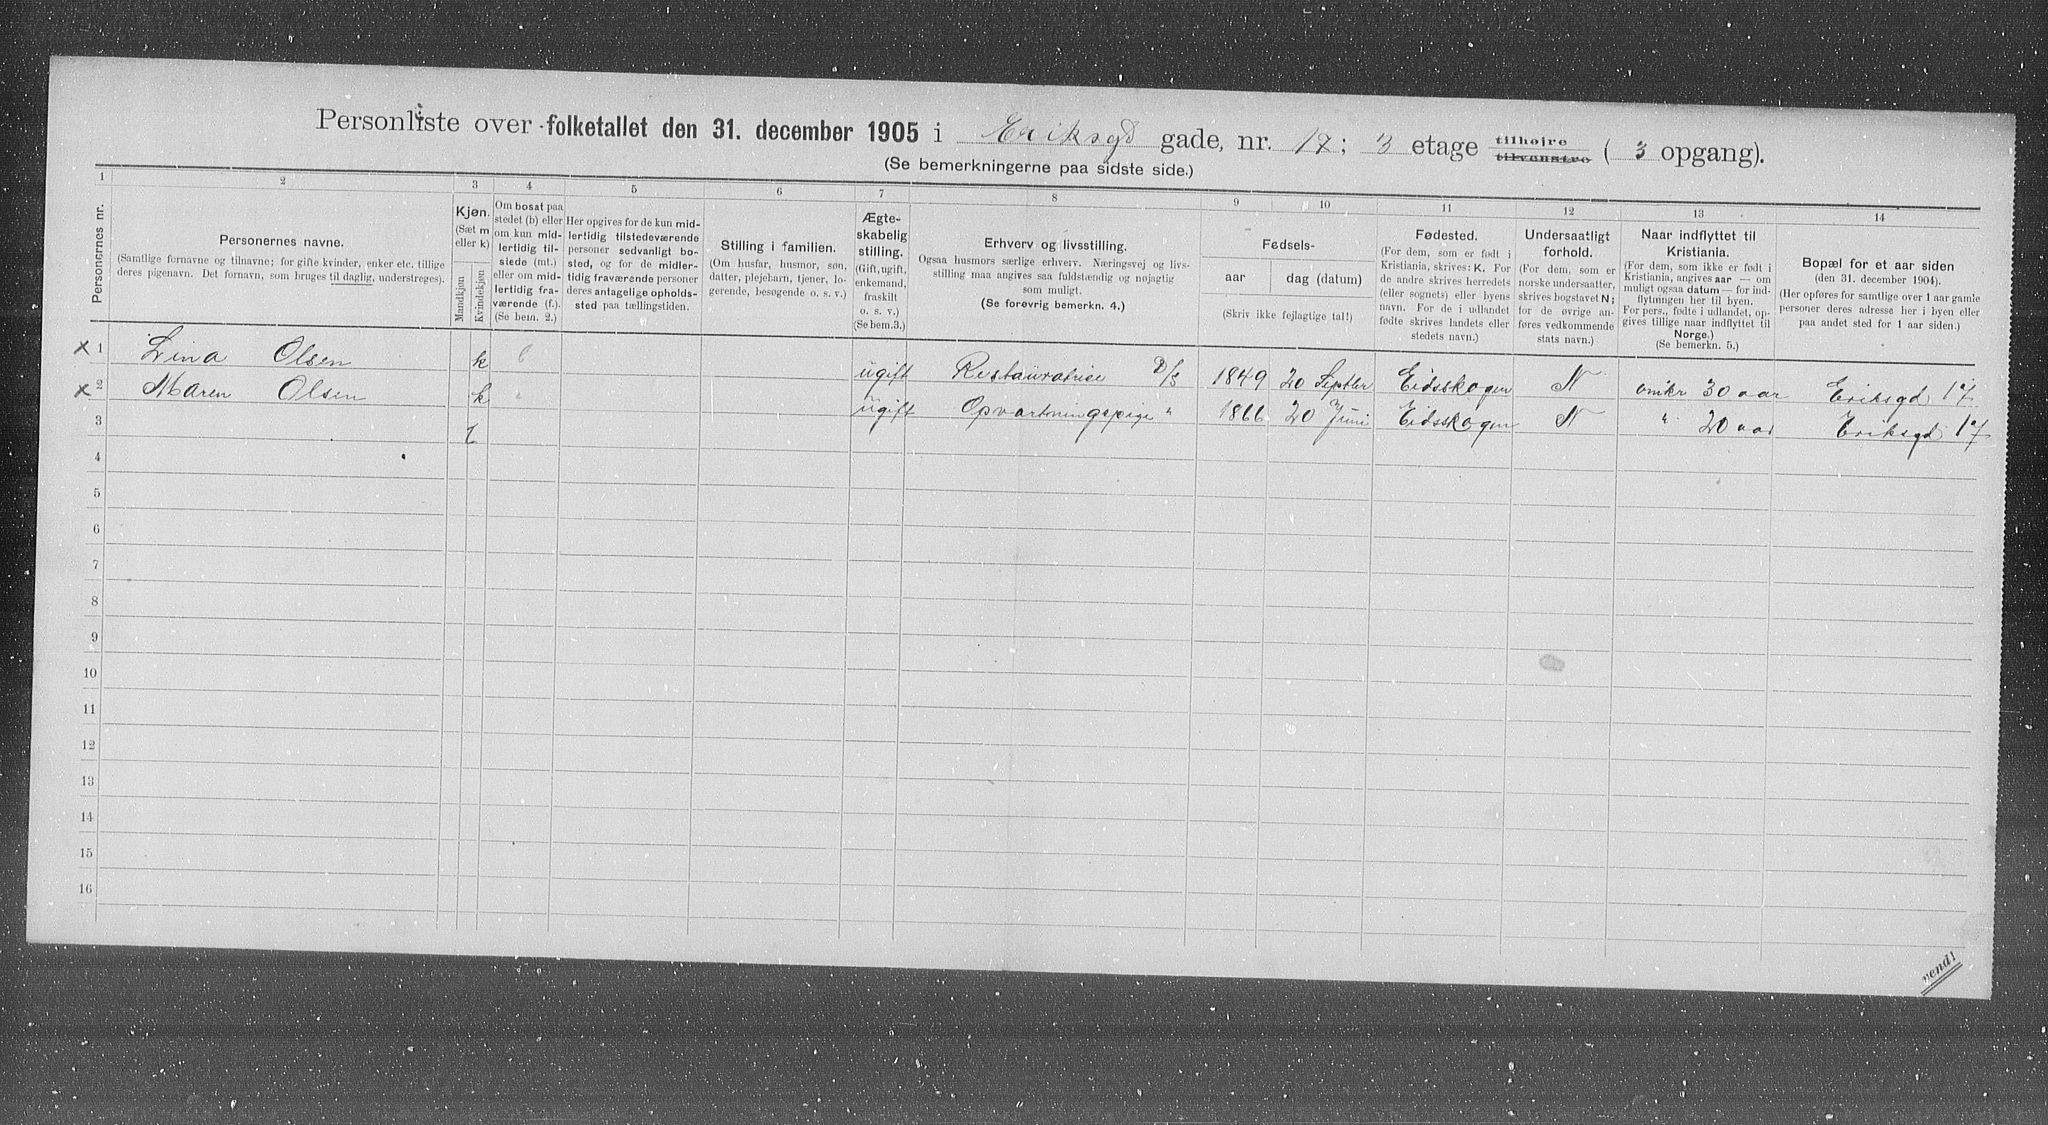 Personliste over folketallet den 31. december 1905 i Eriksgd gade, nr. 17; 3 etage tilhøjre tilvenstre ( 3 opgang).
(Se bemerkningerne paa sidste side.)
1 2 3 4 5 6 7 8 9 10 11 12 13 14
Personernes nr.
Personernes navne.
(Samtlige fornavne og tilnavne; for gifte kvinder, enker etc. tillige
deres pigenavn. Det fornavn, som bruges til daglig, understreges).
Kjøn.
(Sæt m
eller k)
Mandkjøn
Kvindekjøn
Om bosat paa
stedet (b) eller
om kun mid-
lertidig til-
stede (mt.)
eller om mid-
lertidig fra-
værende (f.).
(Se bem. 2.)
Her opgives for de kun mid-
lertidig tilstedeværende
personer sedvanligt bo-
sted, og for de midler-
tidig fraværende personer
deres antagelige opholds-
sted paa tællingstiden.
Stilling i familien.
(Om husfar, husmor, søn,
datter, plejebarn, tjener, lo-
gerende, besøgende o. s. v.)
Ægte-
skabelig
stilling.
(Gift, ugift,
enkemand,
fraskilt
o. s. v.)
(Se bem.3.)
Erhverv og livsstilling.
Ogsaa husmors særlige erhverv. Næringsvej og livs-
stilling maa angives saa fuldstændig og nøjagtig
som muligt.
(Se forøvrig bemerkn. 4.)
Fødsels-
aar dag (datum)
(Skriv ikke fejlagtige tal!)
Fødested.
(For dem, som er født i
Kristiania, skrives: K. For
de andre skrives herredets
(eller sognets) eller byens
navn. For de i udlandet
fødte skrives landets eller
stedets navn.)
Undersaatligt
forhold.
(For dem, som er
norske undersaatter,
skrives bogstavet N;
for de øvrige an-
føres vedkommende
stats navn.)
Naar indflyttet til
Kristiania.
(For dem, som ikke er født i
Kristiania, angives aar — om
muligt ogsaa datum — for ind-
flytningen her til byen.
For pers., fødte i udlandet, op-
gives tillige naar indflyttet til
Norge.)
(Se bemerkn. 5.)
Bopæl for et aar siden
(den 31. december 1904).
(Her opføres for samtlige over 1 aar gamle
personer deres adresse her i byen eller
paa andet sted for 1 aar siden.)
x 1 Lina Olsen k b ugift Restauratrice 1849 20 Septber Eidsskogen N omkr 30 aar Eriksgd 17
x 2 Maren Olsen k " ugift Opvartningspige " 1866 20 Juni Eidsskogen N " 20 aar Eriksgd 17
3
4
5
6
7
8
9
10
11
12
13
14
15
16
vend!